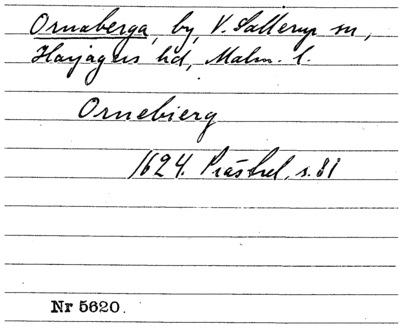 Ornaberga, by, V. Sallerup sn,
Harjagers hd, Malm. l.
Ornebierg
1624. Prästrel. s. 81
Nr 5620.